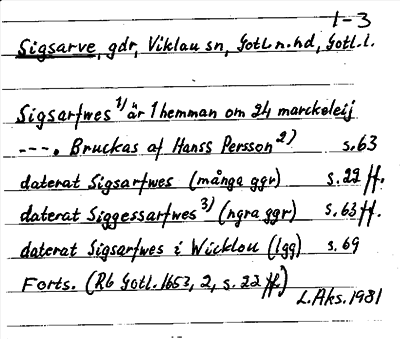 1-3
Sigsarve, gdr, Viklau sn, Gotl. n. hd, Gotl. l.
Sigsarfwes 1) är 1 hemman om 24 marckeleij
---. Bruckas af Hanss Persson 2) s. 63
daterat Sigsarfwes (många ggr) s. 22 ff.
daterat Siggessarfwes 3) (ngra ggr) s. 63 ff.
daterat Sigsarfwes i Wicklou (1gg) s. 69
Forts. (Rb Gotl. 1653, 2, s. 22 ff)
L. Aks. 1981